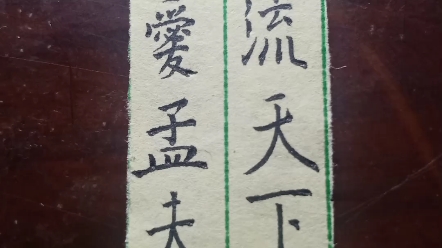 愛孟夫
流天下